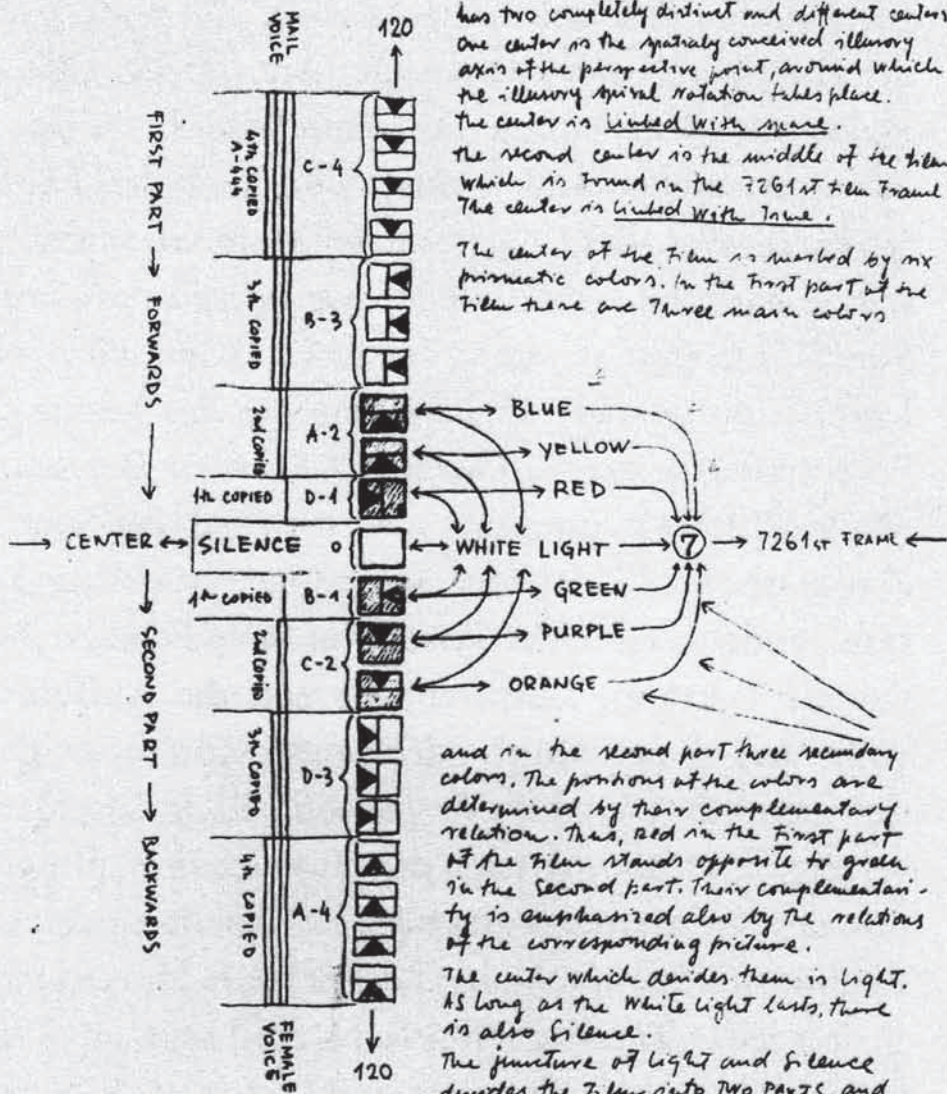 has two completely distinct and different centers.
One center is the spatialy conceived illusory
axis of the perspective point, around which
the illusory spiral rotation takes place.
The center is linked with space.
the second center is the middle of the film
which is found in the 7261st film frame
The center is linked with Time.
The center of the film is marked by six
prismatic colors. In the first part of the
film there are Three main colors
MAIL
VOICE
120
FIRST PART → FORWARDS
4th COPIED
A-444
C-4
3th COPIED
B-3
2nd COPIED
A-2
BLUE
YELLOW
1th COPIED
D-1
RED
CENTER
SILENCE
0
WHITE LIGHT
7
7261st FRAME
1th COPIED
B-1
GREEN
SECOND PART → BACKWARDS
2nd COPIED
C-2
PURPLE
ORANGE
3th COPIED
D-3
4th COPIED
A-4
FEMALE
VOICE
120
and in the second part three secundary
colors. The positions of the colors are
determined by their complementary
relation. Thus, red in the first part
of the film stands opposite to green
in the second part. Their complementari-
ty is emphasized also by the relations
of the corresponding picture.
The center which devides them is light.
As long as the white light lasts, there
is also Silence.
The juncture of light and Silence
devides the Film into TWO PARTS, and